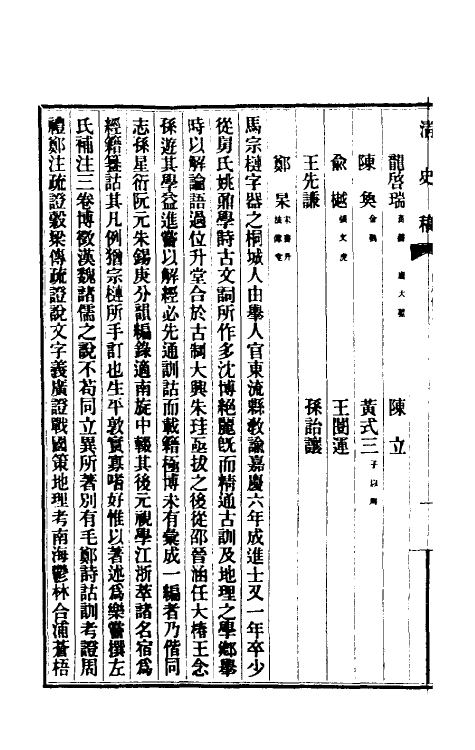 清史稿
龍啓瑞 苗夔 龐大堃 陳立
陳奐 金鶚 黃式三 子以周
俞樾 張文虎 王闓運
王先謙 孫詒讓
鄭杲 宋書升 法偉堂
馬宗槤字器之桐城人由舉人官東流縣敎諭嘉慶六年成進士又一年卒少
從舅氏姚鼐學詩古文詞所作多沈博絕麗旣而精通古訓及地理之學鄉舉
時以解論語過位升堂合於古制大興朱珪亟拔之後從邵晉涵任大椿王念
孫遊其學益進嘗以解經必先通訓詁而載籍極博未有彙成一編者乃偕同
志孫星衍阮元朱錫庚分韻編錄適南旋中輟其後元視學江浙萃諸名宿爲
經籍籑詁其凡例猶宗槤所手訂也生平敦實寡嗜好惟以著述爲樂嘗撰左
氏補注三卷博徵漢魏諸儒之說不苟同立異所著別有毛鄭詩詁訓考證周
禮鄭注疏證穀梁傳疏證說文字義廣證戰國策地理考南海鬱林合浦蒼梧